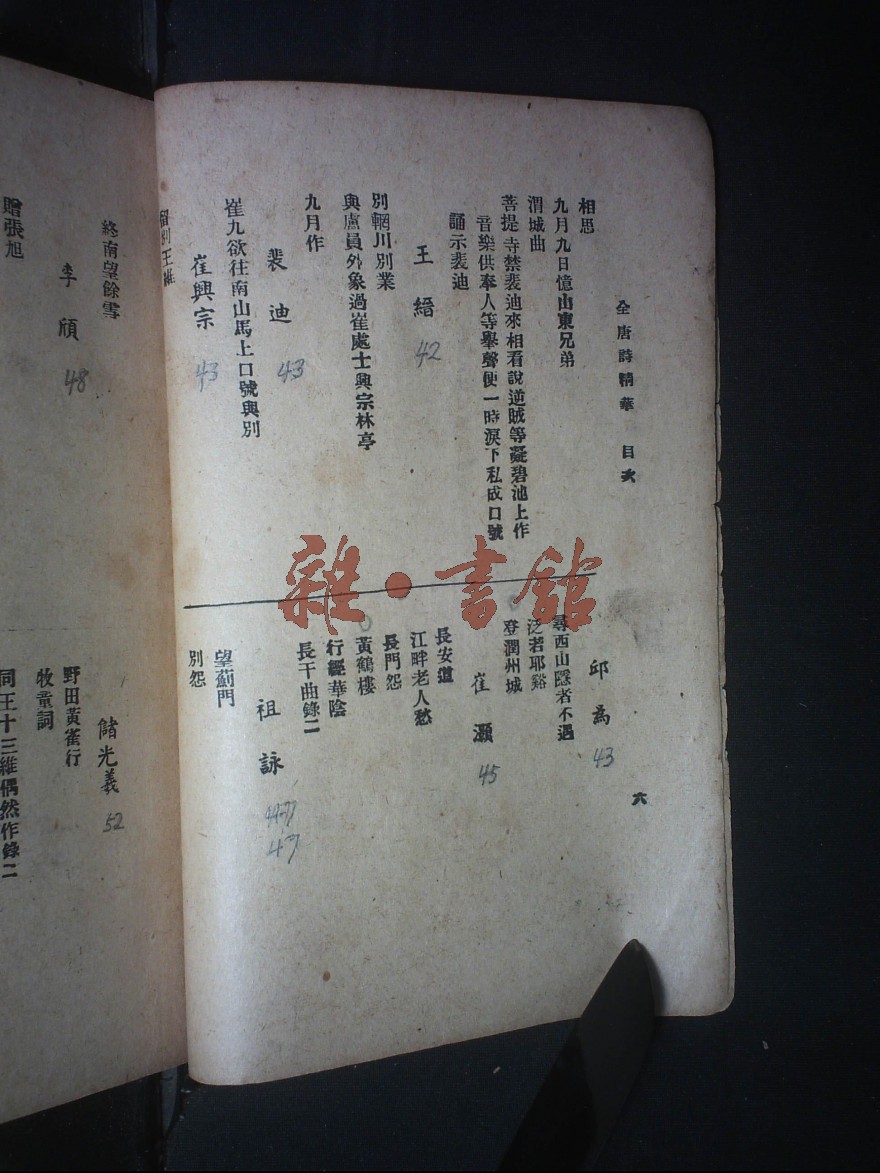 全唐詩精華 目次
六
相思
九月九日憶山東兄弟
渭城曲
菩提寺禁裴迪來相看說逆賊等凝碧池上作
音樂供奉人等舉聲便一時淚下私成口號
誦示裴迪
王縉 42
別輞川別業
與盧員外象過崔處士興宗林亭
九月作
裴迪 43
崔九欲往南山馬上口號與別
崔興宗 43
留別王維
邱為 43
尋西山隱者不遇
泛若耶谿
登潤州城
崔灝 45
長安道
江畔老人愁
長門怨
黃鶴樓
行經華陰
長干曲錄二
祖詠 47
47
望薊門
別怨
終南望餘雪
李頎 48
贈張旭
儲光羲 52
野田黃雀行
牧童詞
同王十三維偶然作錄二
雜·書館